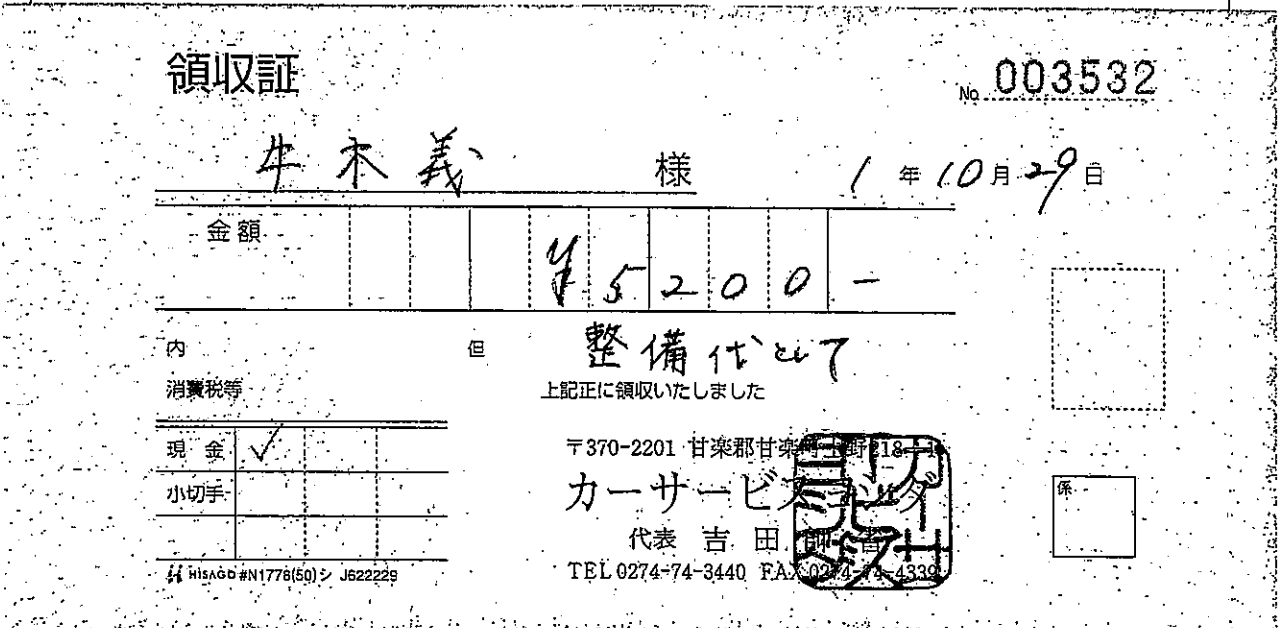 領収証
No. 003532
牛木義 様
1年10月29日
金額 ¥5200-
内
但 整備代として
消費税等
上記正に領収いたしました
現金 ✓
小切手
〒370-2201 甘楽郡甘楽町 野218-1
カーサービスヨシダ
代表 吉田
TEL 0274-74-3440 FAX 0274-74-4339
係
HISAGO #N1778(50)シ J622229